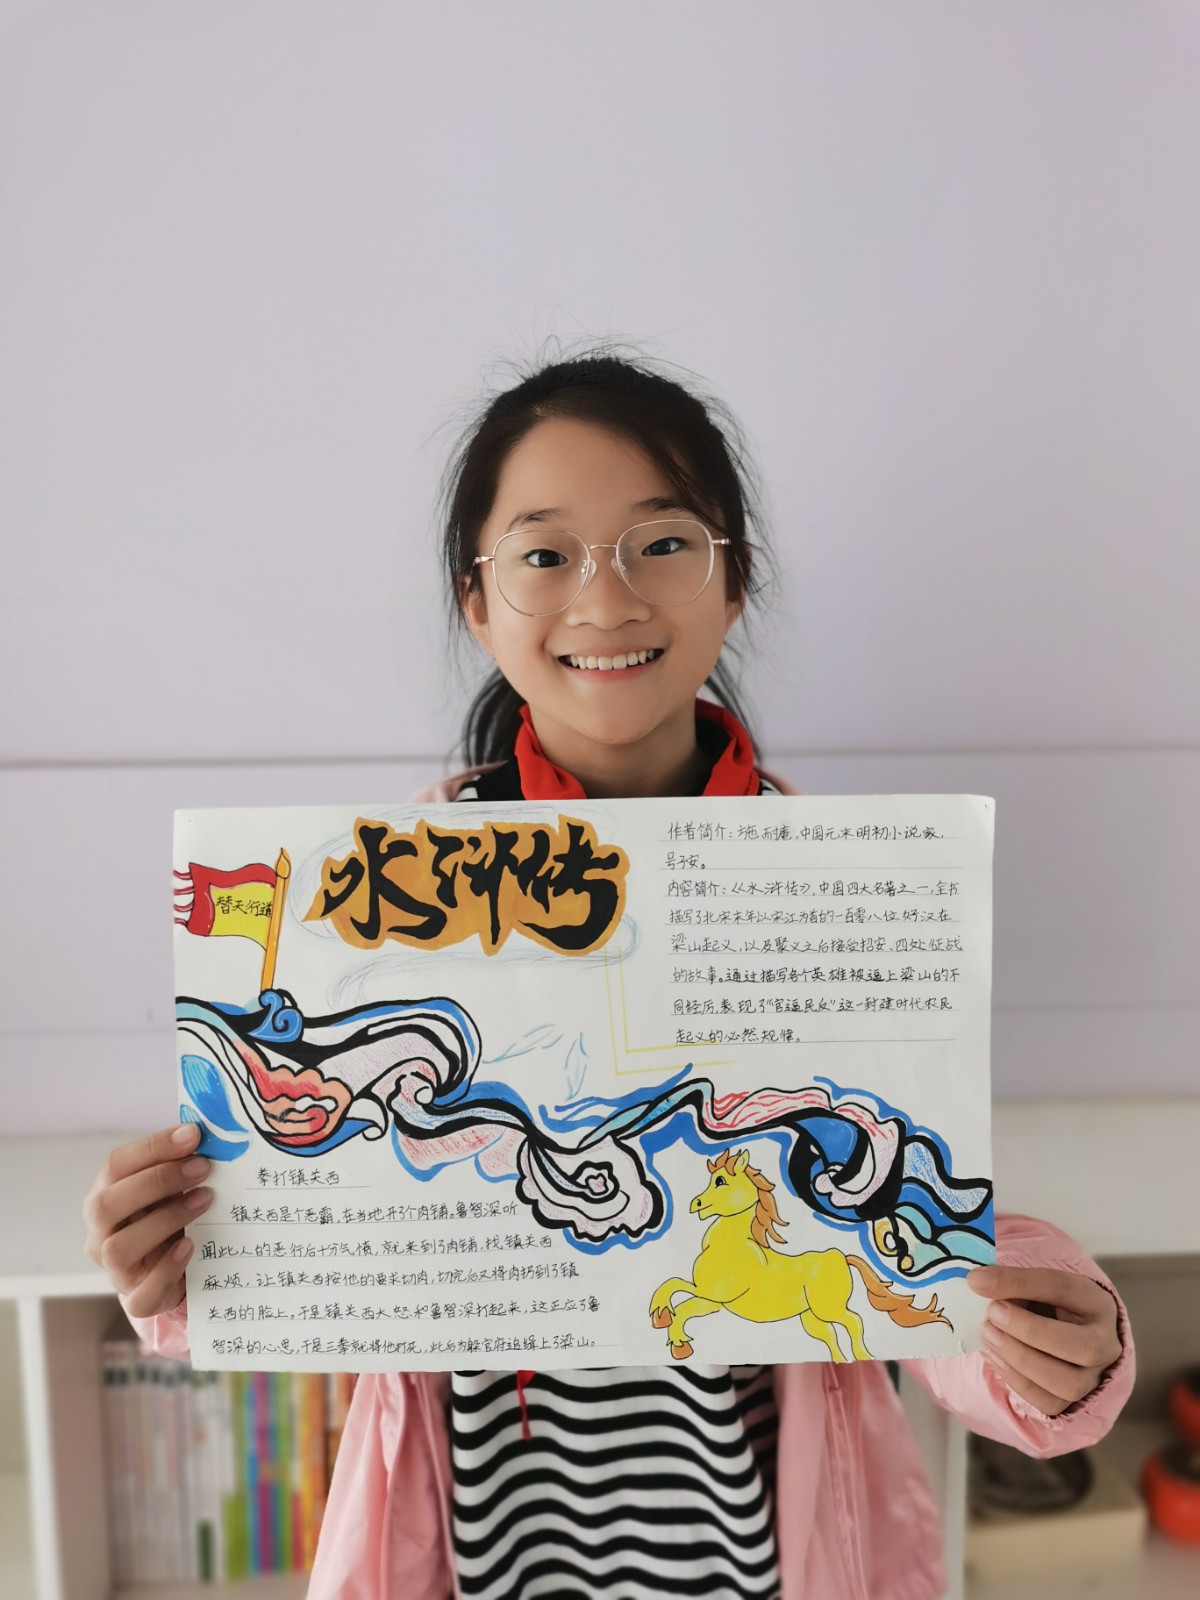 替天行道
水浒传
作者简介：施耐庵，中国元末明初小说家，
号子安。
内容简介：《水浒传》，中国四大名著之一，全书
描写了北宋末年以宋江为首的一百零八位好汉在
梁山起义，以及聚义之后接受招安、四处征战
的故事。通过描写各个英雄被逼上梁山的不
同经历，表现了“官逼民反”这一封建时代农民
起义的必然规律。
拳打镇关西
镇关西是个恶霸，在当地开了个肉铺。鲁智深听
闻此人的恶行后十分气愤，就来到了肉铺，找镇关西
麻烦，让镇关西按他的要求切肉，切完后又将肉扔到了镇
关西的脸上。于是镇关西大怒和鲁智深打起来，这正应了鲁
智深的心思，于是三拳就将他打死，此后为躲官府追缉上了梁山。